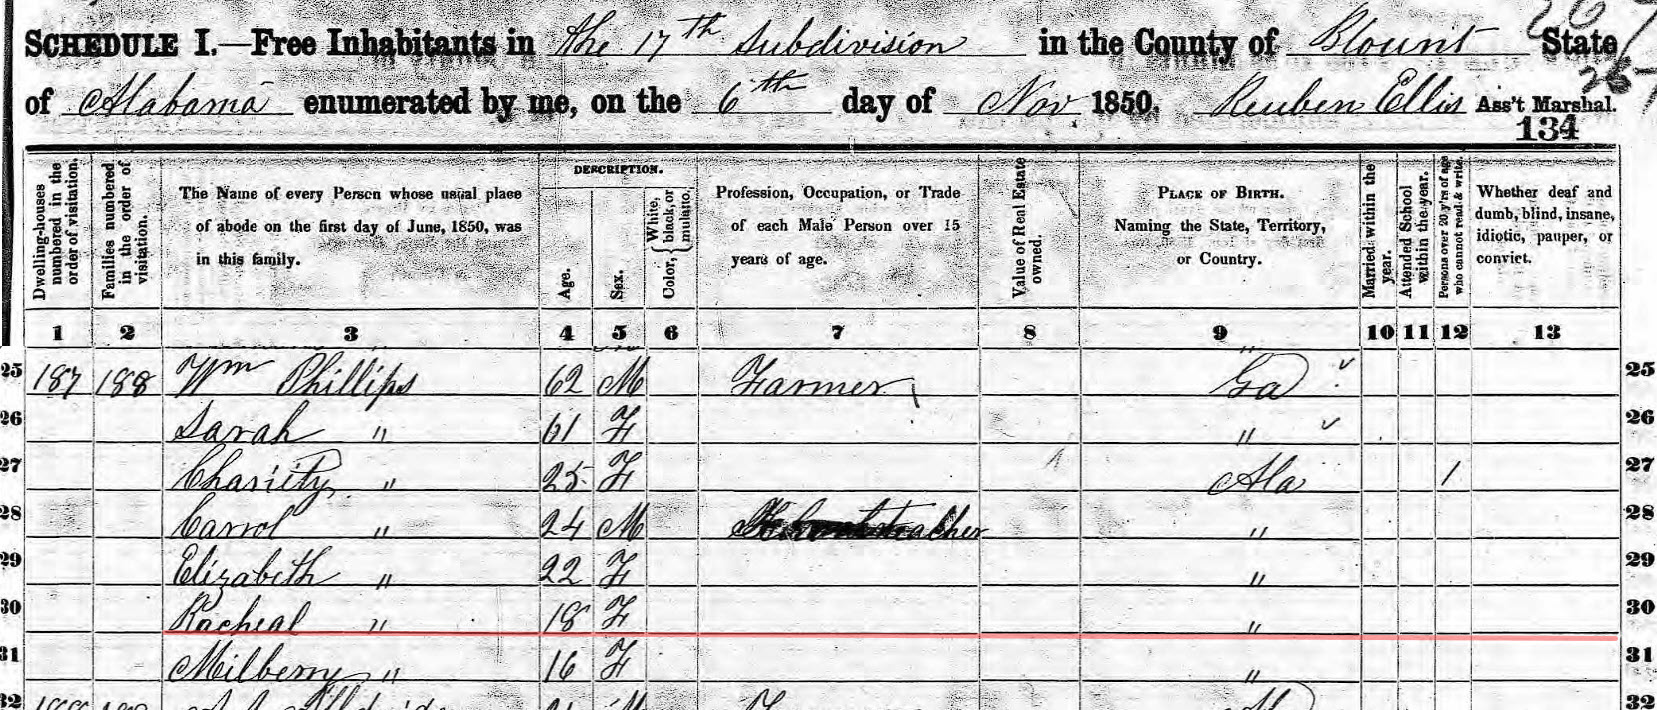 267
SCHEDULE I.—Free Inhabitants in the 17th Subdivision in the County of Blount State
267
of Alabama enumerated by me, on the 6th day of Nov 1850. Reuben Ellis Ass't Marshal.
134
Dwelling-houses numbered in the order of visitation.
Families numbered in the order of visitation.
The Name of every Person whose usual place of abode on the first day of June, 1850, was in this family.
DESCRIPTION.
Age.
Sex.
Color, { White, black, or mulatto. }
Profession, Occupation, or Trade of each Male Person over 15 years of age.
Value of Real Estate owned.
PLACE OF BIRTH. Naming the State, Territory, or Country.
Married within the year.
Attended School within the year.
Persons over 20 y'rs of age who cannot read & write.
Whether deaf and dumb, blind, insane, idiotic, pauper, or convict.
1 2 3 4 5 6 7 8 9 10 11 12 13
25 187 188 Wm Phillips 62 M Farmer Ga 25
26 Sarah " 61 F " 26
27 Charity " 25 F Ala 1 27
28 Carrol " 24 M " 28
29 Elizabeth " 22 F " 29
30 Racheal " 18 F " 30
31 Milberry " 16 F " 31
32 32